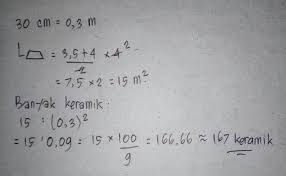 30 cm = 0,3 m
L⏢ = (3,5+4)/2 × 4²
= 7,5 × 2 = 15 m²
Banyak keramik :
15 : (0,3)²
= 15 : 0,09 = 15 × 100/9 = 166,66 ≈ 167 keramik